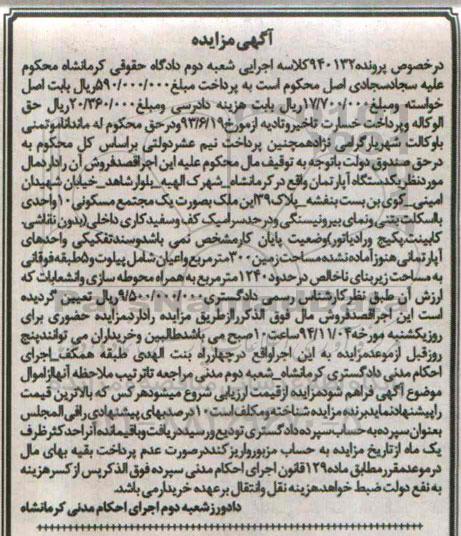 آگهی مزایده
درخصوص پرونده۹۴۰۱۳۲کلاسه اجرایی شعبه دوم دادگاه حقوقی کرمانشاه محکوم
علیه سجادسجادی اصل محکوم است به پرداخت مبلغ۵۹۰/۰۰۰/۰۰۰ریال بابت اصل
خواسته ومبلغ۱۷/۷۰۰/۰۰۰ریال بابت هزینه دادرسی ومبلغ۲۰/۳۶۰/۰۰۰ریال حق
الوکاله وپرداخت خسارت تاخیروتادیه ازمورخ۹۳/۶/۱۹ودرحق محکوم له ماندانامؤتمنی
باوکالت شهریارگرامی نژادهمچنین پرداخت نیم عشردولتی براساس کل محکوم به
درحق صندوق دولت باتوجه به توقیف مال محکوم علیه این اجراقصدفروش آن رادارد.مال
موردنظریکدستگاه آپارتمان واقع درکرمانشاه_شهرک الهیه_بلوارشاهد_خیابان شهیدان
امینی_کوی بن بست بنفشه_پلاک۳۹این ملک بصورت یک مجتمع مسکونی۱۰واحدی
بااسکلت بتنی ونمای بیرونیسنگی ودرحدسرامیک کف وسفیدکاری داخلی(بدون نقاشی
کابینت،پکیج ورادیاتور)وضعیت پایان کارمشخص نمی باشدوسندتفکیکی واحدهای
آپارتمانی هنوزآماده نشده مساحت زمین۳۰۰مترمربع واعیان شامل پیلوت و۵طبقه فوقانی
به مساحت زیربنای ناخالص درحدود۱۲۴۰مترمربع به همراه محوطه سازی وانشعابات که
ارزش آن طبق نظرکارشناس رسمی دادگستری۹/۵۰۰/۰۰۰/۰۰۰ریال تعیین گردیده
است این اجراقصدفروش مال فوق الذکرراازطریق مزایده راداردمزایده حضوری برای
روزیکشنبه مورخه۹۴/۱۱/۰۴ساعت۱۰صبح می باشدطالبین وخریداران می توانندپنج
روزقبل ازموعدمزایده به این اجراواقع درچهارراه بنت الهدی طبقه همکف_اجرای
احکام مدنی دادگستری کرمانشاه_شعبه دوم مدنی مراجعه تاترتیب ملاحظه آنهاازاموال
موضوع آگهی فراهم شودمزایده ازقیمت ارزیابی شروع میشودهرکس که بالاترین قیمت
راپیشنهادنمایدبرنده مزایده شناخته ومکلف است۱۰درصدبهای پیشنهادی رافی المجلس
بعنوان سپرده به حساب سپرده دادگستری تودیع ورسیددریافت وباقیمانده آنراحداکثرظرف
یک ماه ازتاریخ مزایده به حساب مزبورواریزکننددرصورت عدم پرداخت بقیه بهای مال
درموعدمقررمطابق ماده۱۲۹قانون اجرای احکام مدنی سپرده فوق الذکرپس ازکسرهزینه
به نفع دولت ضبط خواهدشد.هزینه نقل وانتقال برعهده خریدارمی باشد.
دادورزشعبه دوم اجرای احکام مدنی کرمانشاه